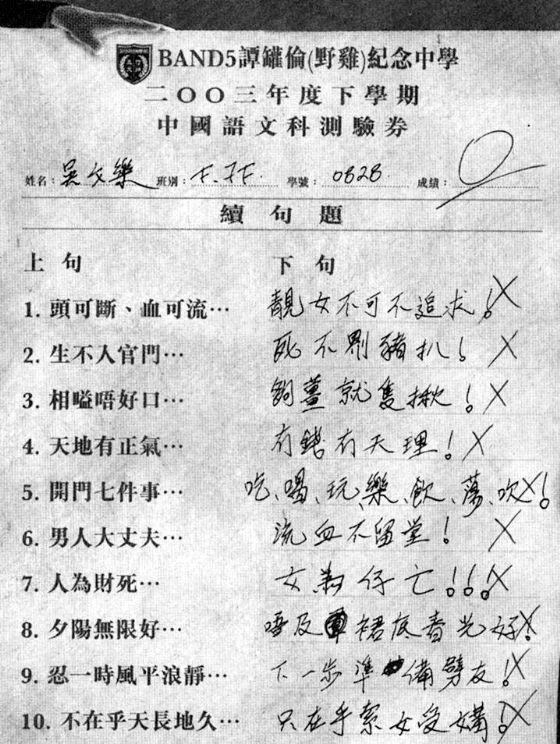 BAND5譚罐倫(野雞)紀念中學
二〇〇三年度下學期
中國語文科測驗券
姓名：吳文樂 班別： 學號：0828 成績：0
續句題
上句 下句
1. 頭可斷、血可流… 靚女不可不追求！
2. 生不入官門… 死不豬扒！
3. 相嗌唔好口… 夠薑就隻揪！
4. 天地有正氣… 有錢有天理！
5. 開門七件事… 吃、喝、玩、樂、飲、蕩、吹！
6. 男人大丈夫… 流血不留堂！
7. 人為財死… 女為仔亡！！！
8. 夕陽無限好… 唔及裙底春光好！
9. 忍一時風平浪靜… 下一步準備劈友！
10. 不在乎天長地久… 只在乎索女受媾！